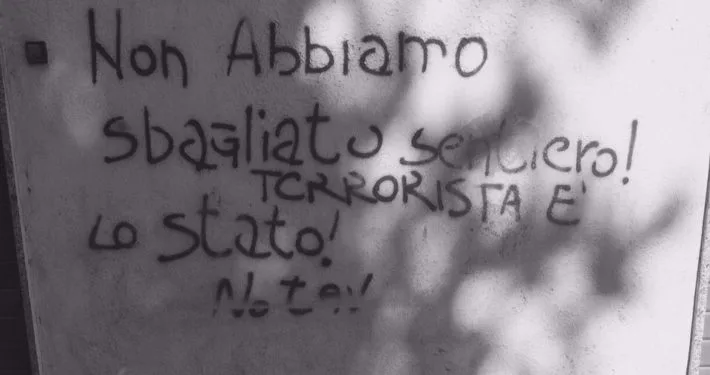 Non Abbiamo
sbagliato sentiero!
TERRORISTA E'
Lo stato!
No tav